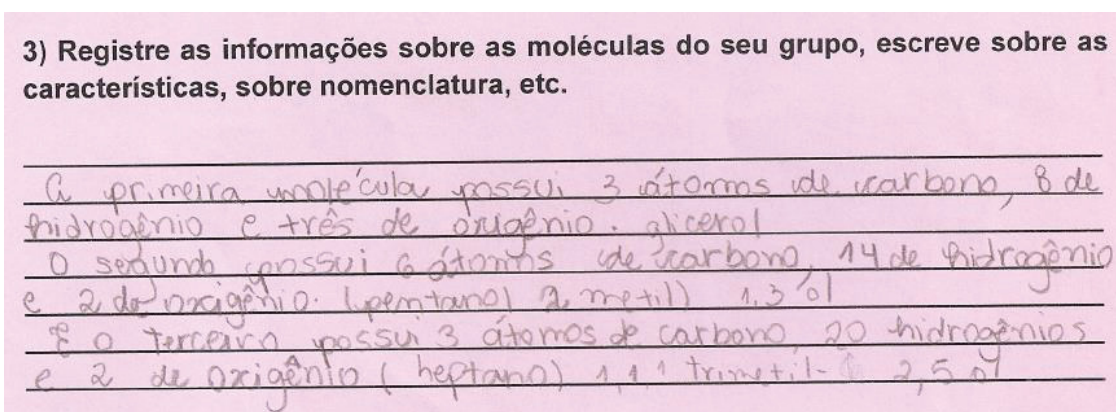 3) Registre as informações sobre as moléculas do seu grupo, escreve sobre as
características, sobre nomenclatura, etc.
A primeira molécula possui 3 átomos de carbono, 8 de
hidrogênio e três de oxigênio. glicerol
O segundo possui 6 átomos de carbono, 14 de hidrogênio
e 2 de oxigênio. (pentanol 2, metil) 1,3 ol
E o terceiro possui 3 átomos de carbono, 20 hidrogênios
e 2 de oxigênio (heptano) 1,1,1 trimetil- 2,5 ol